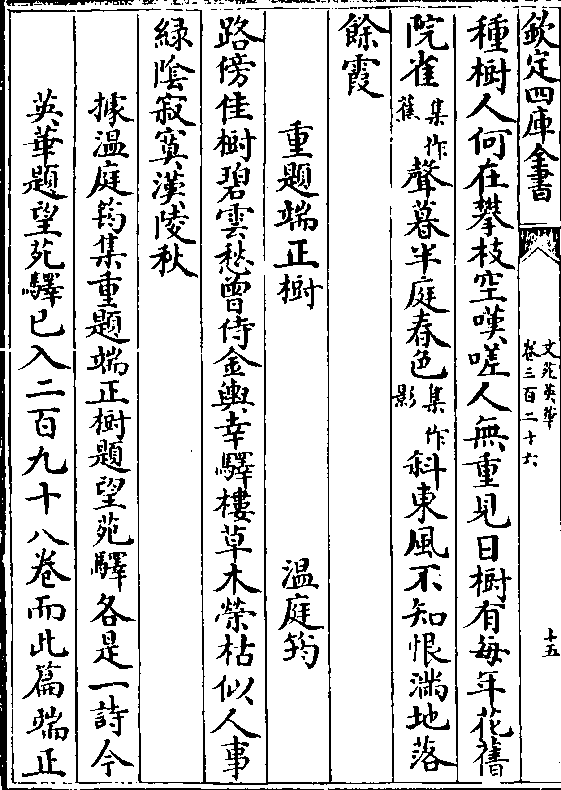 欽定四庫全書
文苑英華
卷三百二十六
十五
種樹人何在攀枝空嘆嗟人無重見日樹有每年花舊
院雀集作蕉聲暮半庭春色集作影斜東風不知恨滿地落
餘霞
重題端正樹
溫庭筠
路傍佳樹碧雲愁曾侍金輿幸驛樓草木榮枯似人事
緑陰寂寞漢陵秋
據溫庭筠集重題端正樹題望苑驛各是一詩今
英華題望苑驛已入二百九十八卷而此篇端正